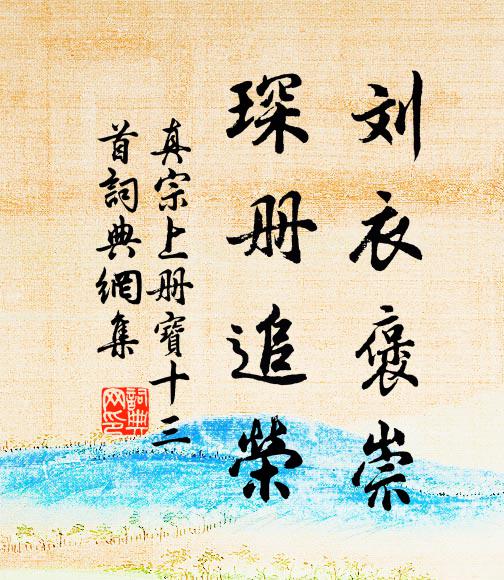 刘衣褒崇
琛册追榮
真宗上册寶十三
首詞典網集
詞典
网印